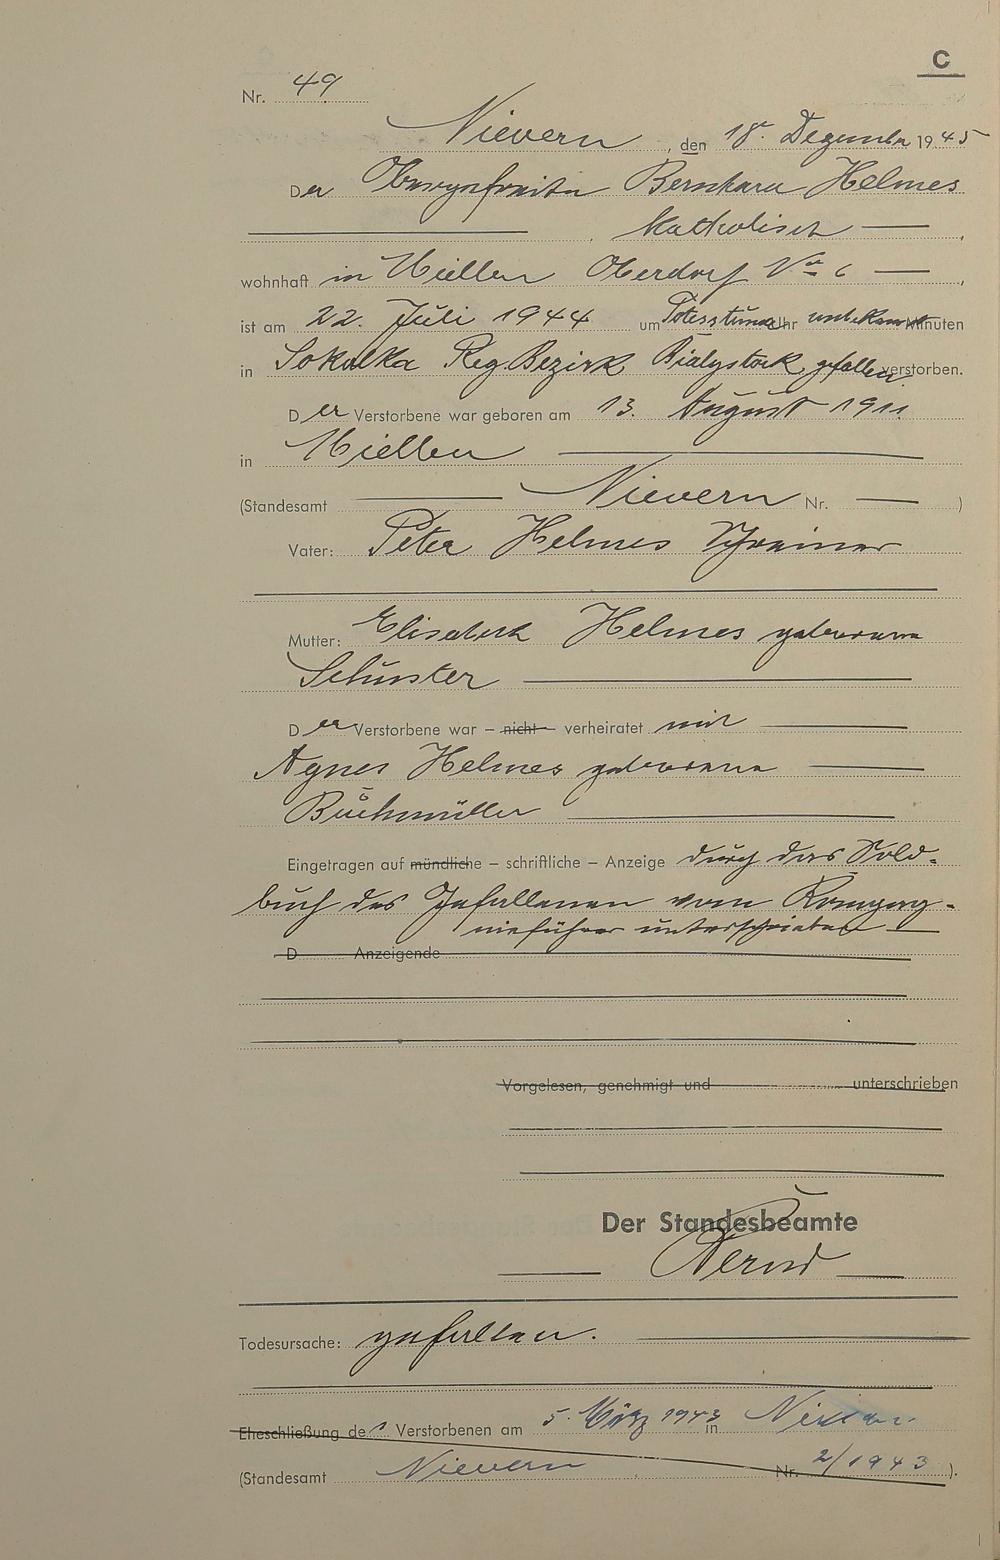 C
Nr. 49
Nievern, den 18. Dezember 1945
Der Obergefreite Bernhard Helmes
katholisch
wohnhaft in Miellen Oberdorf No 6
ist am 22. Juli 1944 um Todesstunde Uhr unbekannt Minuten
in Sokolka Reg. Bezirk Bialystock gefallen verstorben.
Der Verstorbene war geboren am 13. August 1911
in Miellen
(Standesamt Nievern Nr. )
Vater: Peter Helmes Schreiner
Mutter: Elisabeth Helmes geborene
Schuster
Der Verstorbene war – nicht – verheiratet mit
Agnes Helmes geborene
Buchmüller
Eingetragen auf mündliche – schriftliche – Anzeige durch das Sold-
buch des Gefallenen vom Kompag-
nieführer unterschrieben
D Anzeigende
Vorgelesen, genehmigt und unterschrieben
Der Standesbeamte
Todesursache: gefallen.
Eheschließung des Verstorbenen am 5. März 1943 in Nievern
(Standesamt Nievern Nr. 2/1943 ).